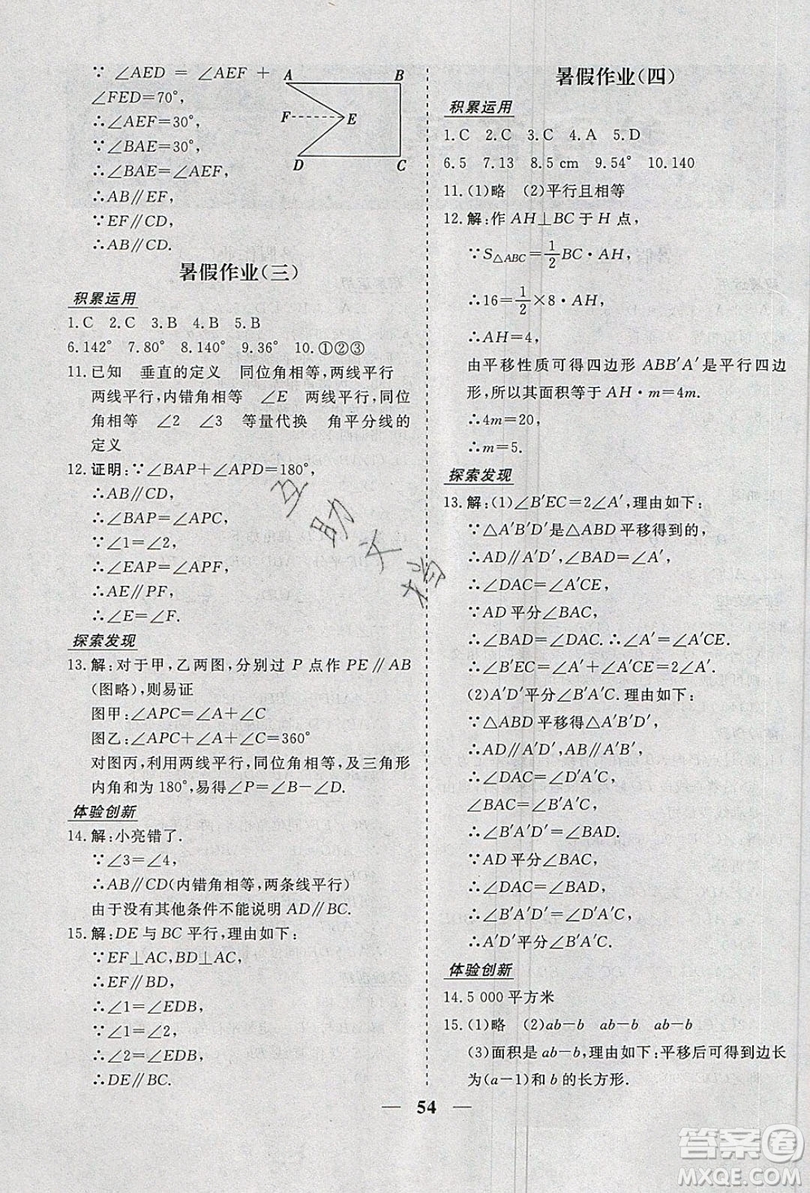 ∵ ∠AED = ∠AEF +
∠FED=70°,
∴∠AEF=30°,
∵∠BAE=30°,
∴∠BAE=∠AEF,
∴AB∥EF,
∵EF∥CD,
∴AB∥CD.
A
B
F
E
D
C
暑假作业(三)
积累运用
1.C 2.C 3.B 4.B 5.B
6.142° 7.80° 8.140° 9.36° 10.①②③
11.已知 垂直的定义 同位角相等,两线平行
两线平行,内错角相等 ∠E 两线平行,同位
角相等 ∠2 ∠3 等量代换 角平分线的
定义
12.证明:∵∠BAP+∠APD=180°,
∴AB∥CD.
∴∠BAP=∠APC,
∵∠1=∠2,
∴∠EAP=∠APF,
∴AE∥PF,
∴∠E=∠F.
探索发现
13.解:对于甲,乙两图,分别过 P 点作 PE∥AB
(图略),则易证
图甲:∠APC=∠A+∠C
图乙:∠APC+∠A+∠C=360°
对图丙,利用两线平行,同位角相等,及三角形
内角和为 180°,易得∠P=∠C-∠A.
体验创新
14.解:小亮错了.
∵∠3=∠4,
∴AB∥CD(内错角相等,两条线平行)
由于没有其他条件不能说明 AD∥BC.
15.解:DE 与 BC 平行,理由如下:
∵EF⊥AC,BD⊥AC,
∴EF∥BD,
∴∠1=∠EDB,
∵∠1=∠2,
∴∠2=∠EDB,
∴DE∥BC.
暑假作业(四)
积累运用
1.C 2.C 3.C 4.A 5.D
6.5 7.13 8.5 cm 9.54° 10.140
11.(1)略 (2)平行且相等
12.解:作 AH⊥BC 于 H 点,
∵S△ABC=1/2 BC·AH,
∴16=1/2×8·AH,
∴AH=4,
由平移性质可得四边形 ABB′A′是平行四边
形,所以其面积等于 AH·m=4m.
∴4m=20,
∴m=5.
探索发现
13.解:(1)∠B′EC=2∠A′,理由如下:
∵△A′B′D′是△ABD 平移得到的,
∴AD∥A′D′,AB∥A′B′,
∴∠DAC=∠A′,
∴∠DAC=∠A′CE,
∵AD 平分∠BAC,
∴∠BAD=∠DAC.∴∠A′=∠A′CE,
∴∠B′EC=2∠A′.
(2)A′D′平分∠B′A′C,理由如下:
∵△ABD 平移得△A′B′D′,
∴AD∥A′D′,AB∥A′B′,
∴∠DAC=∠D′A′C,
∠BAC=∠B′A′C,
∴∠B′A′D′=∠BAD.
∵AD 平分∠BAC,
∴∠DAC=∠BAD,
∴∠D′A′C=∠B′A′D′,
∴A′D′平分∠B′A′C.
体验创新
14.5 000 平方米
15.(1)略 (2)ab-b ab-b ab-b
(3)面积是 ab-b,理由如下:平移后可得到边长
为(a-1)和 b 的长方形.
54
互助文档
答案圈
MXQE.COM